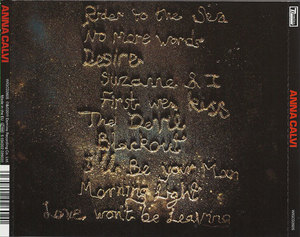 Rider to the Sea
No More Words
Desire
Suzanne & I
First we Kiss
The Devil
Blackout
I'll Be your Man
Morning Light
Love won't be Leaving
ANNA CALVI
ANNA CALVI